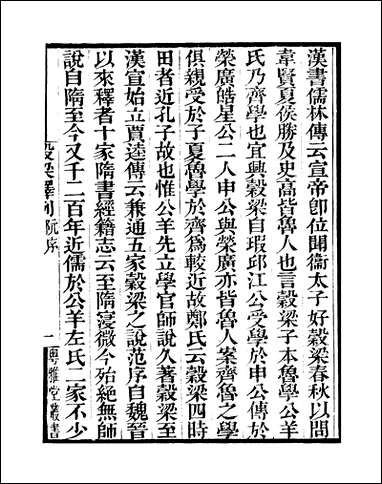 漢書儒林傳云宣帝卽位聞衞太子好穀梁春秋以問
韋賢夏侯勝及史高皆魯人也言穀梁子本魯學公羊
氏乃齊學也宜興穀梁自瑕邱江公受學於申公傳於
榮廣皓星公二人申公與榮廣亦皆魯人案齊魯之學
俱親受於子夏魯學於齊爲較近故鄭氏云穀梁四時
田者近孔子故也惟公羊先立學官師說久著穀梁至
漢宣始立賈逵傳云兼通五家穀梁之說范序自魏晉
以來釋者十家隋書經籍志云至隋寖微今殆絕無師
說自隋至今又千二百年近儒於公羊左氏二家不少
穀梁釋例 阮序 一 粵雅堂叢書